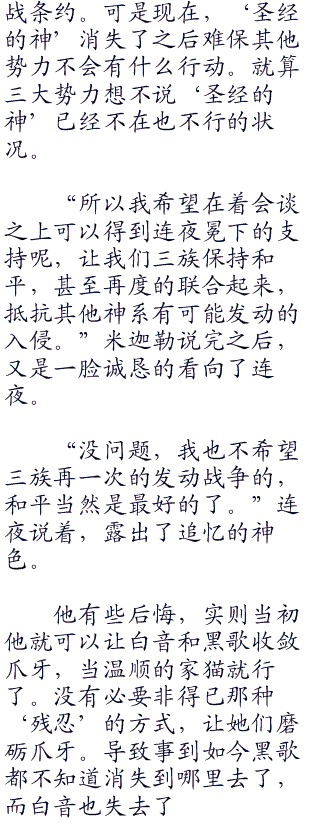 战条约。可是现在，‘圣经
的神’消失了之后难保其他
势力不会有什么行动。就算
三大势力想不说‘圣经的
神’已经不在也不行的状
况。
“所以我希望在着会谈
之上可以得到连夜冕下的支
持呢，让我们三族保持和
平，甚至再度的联合起来，
抵抗其他神系有可能发动的
入侵。”米迦勒说完之后，
又是一脸诚恳的看向了连
夜。
“没问题，我也不希望
三族再一次的发动战争的，
和平当然是最好的了。”连
夜说着，露出了追忆的神
色。
他有些后悔，实则当初
他就可以让白音和黑歌收敛
爪牙，当温顺的家猫就行
了。没有必要非得已那种
‘残忍’的方式，让她们磨
砺爪牙。导致事到如今黑歌
都不知道消失到哪里去了，
而白音也失去了